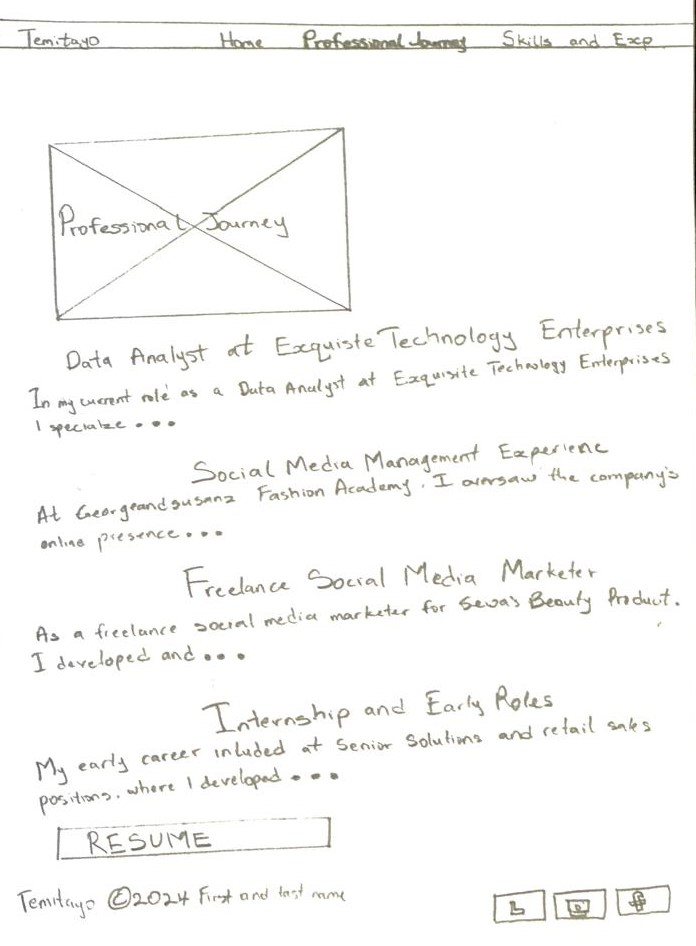 Temitayo Home Professional Journey Skills and Exp
Professional Journey
Data Analyst at Exquiste Technology Enterprises
In my current role as a Data Analyst at Exquisite Technology Enterprises
I specialze ...
Social Media Management Experienc
At Georgeandsusanz Fashion Academy. I oversaw the company's
online presence...
Freelance Social Media Marketer
As a freelance social media marketer for Sewa's Beauty Product.
I developed and ...
Internship and Early Roles
My early career inluded at Senior Solutions and retail sales
positions. where I developed ...
RESUME
Temitayo ©2024 First and last name